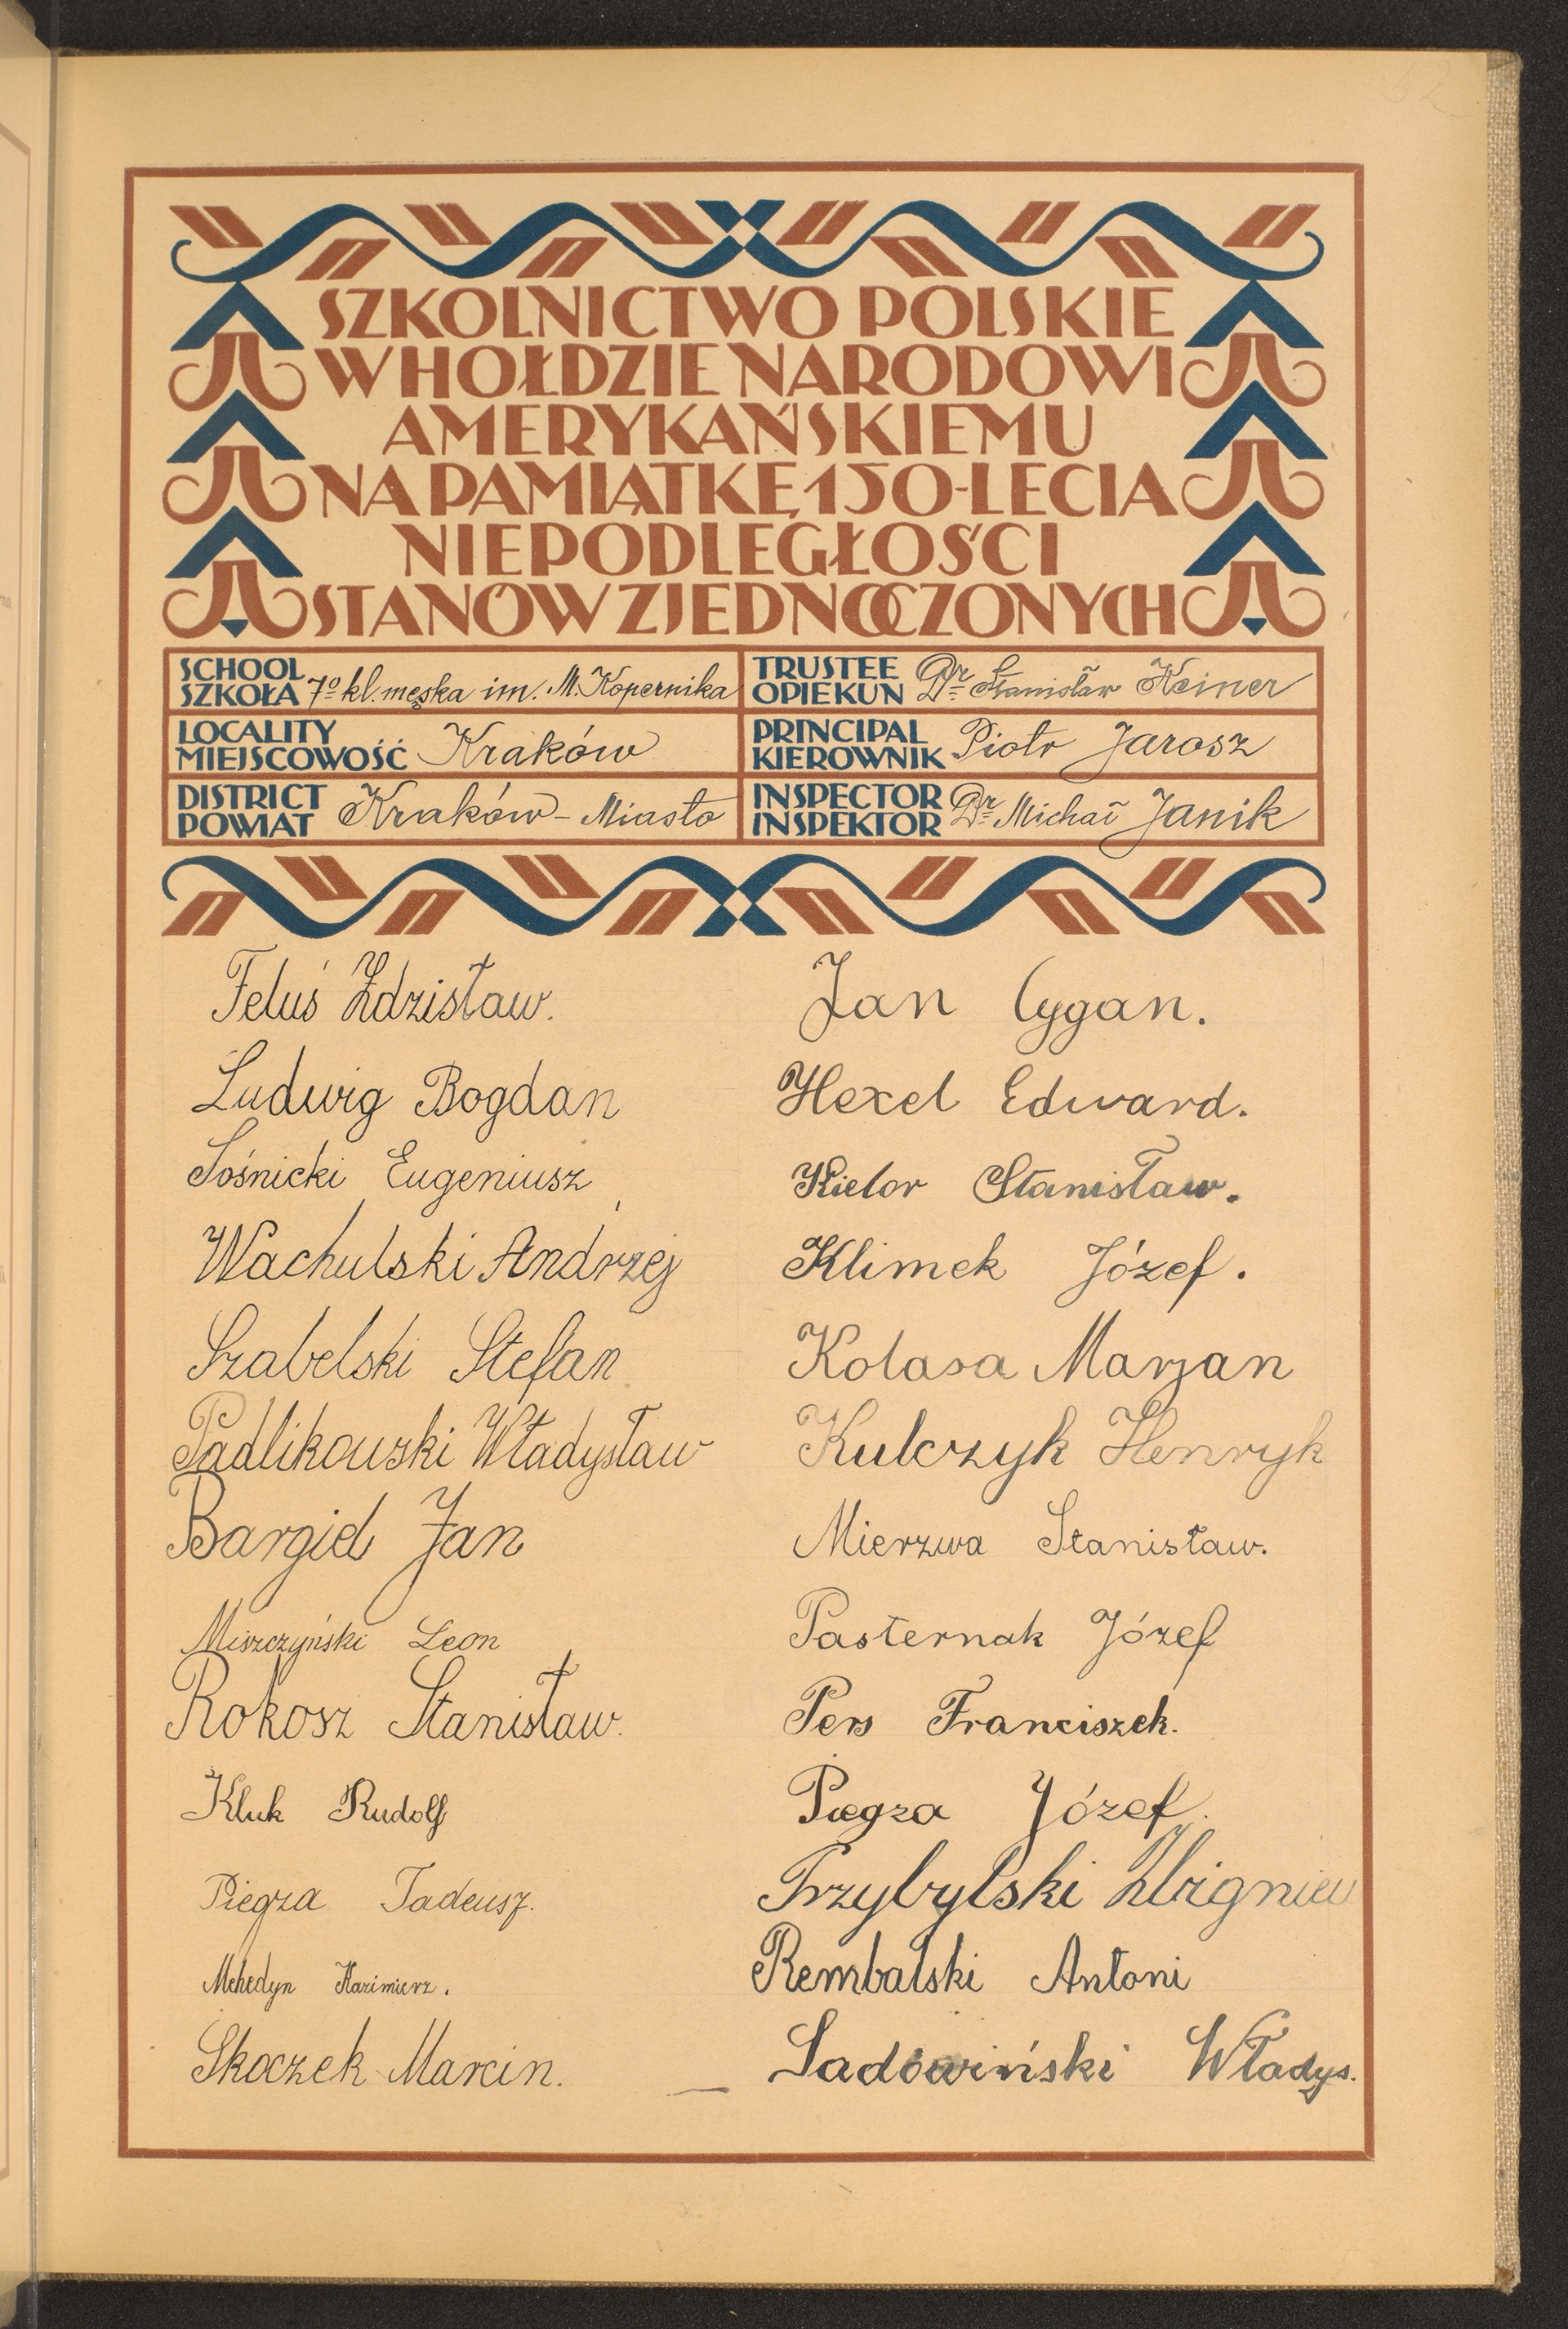 SZKOLNICTWO POLSKIE
W HOŁDZIE NARODOWI
AMERYKAŃSKIEMU
NA PAMIĄTKĘ 150-LECIA
NIEPODLEGŁOŚCI
STANÓW ZJEDNOCZONYCH
SCHOOL
SZKOŁA 7o kl. męska im. M. Kopernika
TRUSTEE
OPIEKUN Dr Stanisław Keiner
LOCALITY
MIEJSCOWOŚĆ Kraków
PRINCIPAL
KIEROWNIK Piotr Jarosz
DISTRICT
POWIAT Kraków - Miasto
INSPECTOR
INSPEKTOR Dr Michał Janik
Feluś Zdzisław.
Ludwig Bogdan
Sośnicki Eugeniusz
Wachulski Andrzej
Szabelski Stefan
Padlikowski Władysław
Bargieł Jan
Miszczyński Leon
Rokosz Stanisław.
Kluk Rudolf
Piegza Tadeusz.
Mehedyn Kazimierz.
Skoczek Marcin.
Jan Cygan.
Hexel Edward.
Kielor Stanisław.
Klimek Józef.
Kolasa Marjan
Kulczyk Henryk
Mierzwa Stanisław.
Pasternak Józef
Pers Franciszek.
Piegza Józef.
Przybylski Zbigniew
Rembalski Antoni
Sadowiński Władys.